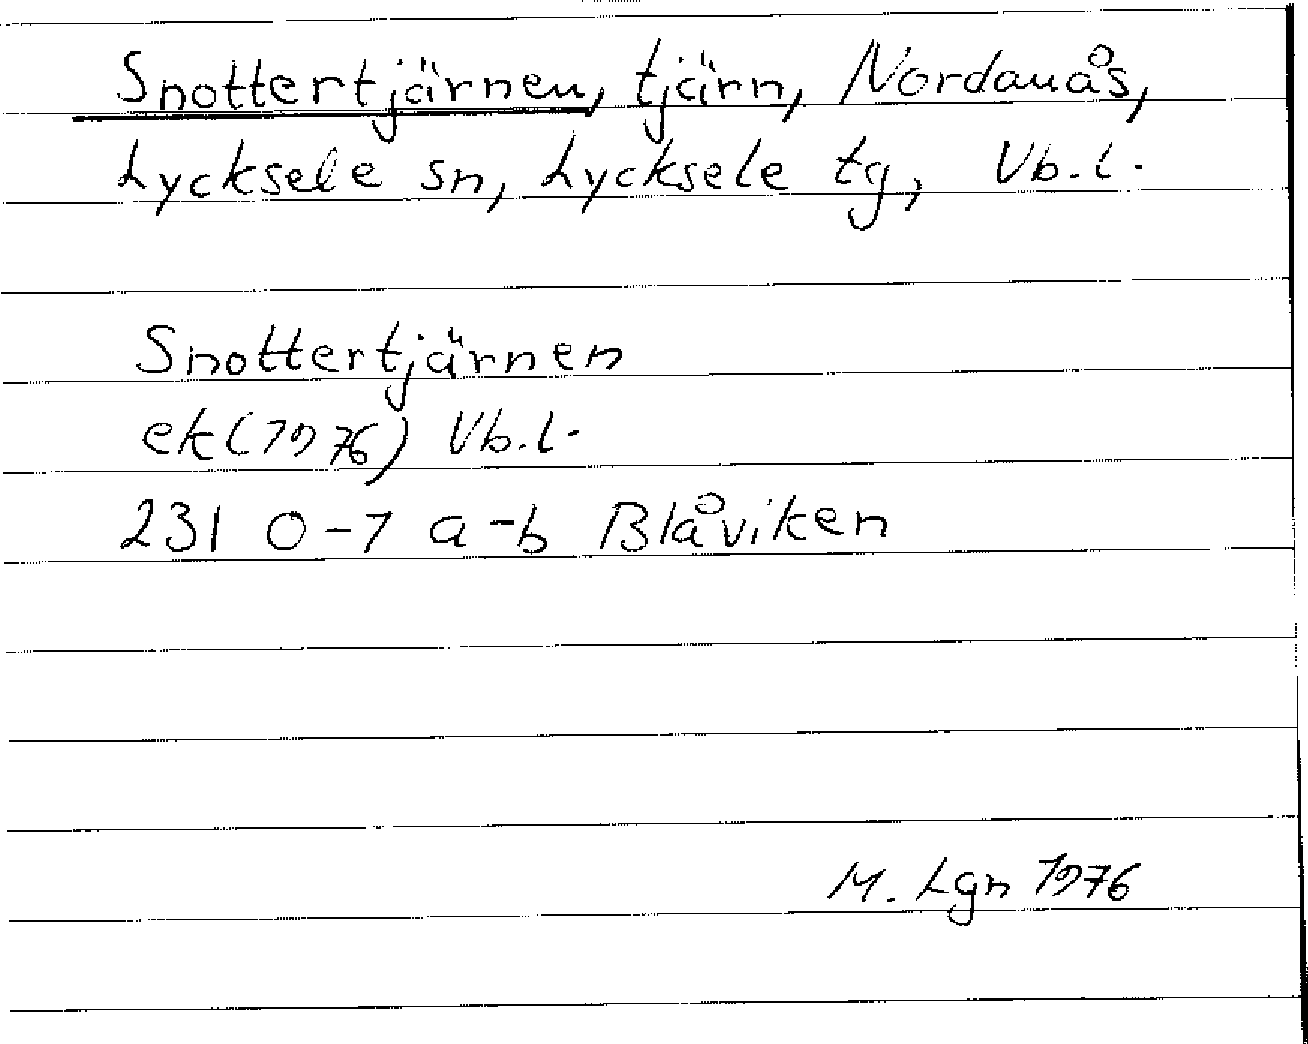 Snottertjärnen, tjärn, Nordanås,
Lycksele sn, Lycksele tg, Vb.l.
Snottertjärnen
ek(1976) Vb.l.
231 0-1 a-b Blåviken
M. Lgn 1976